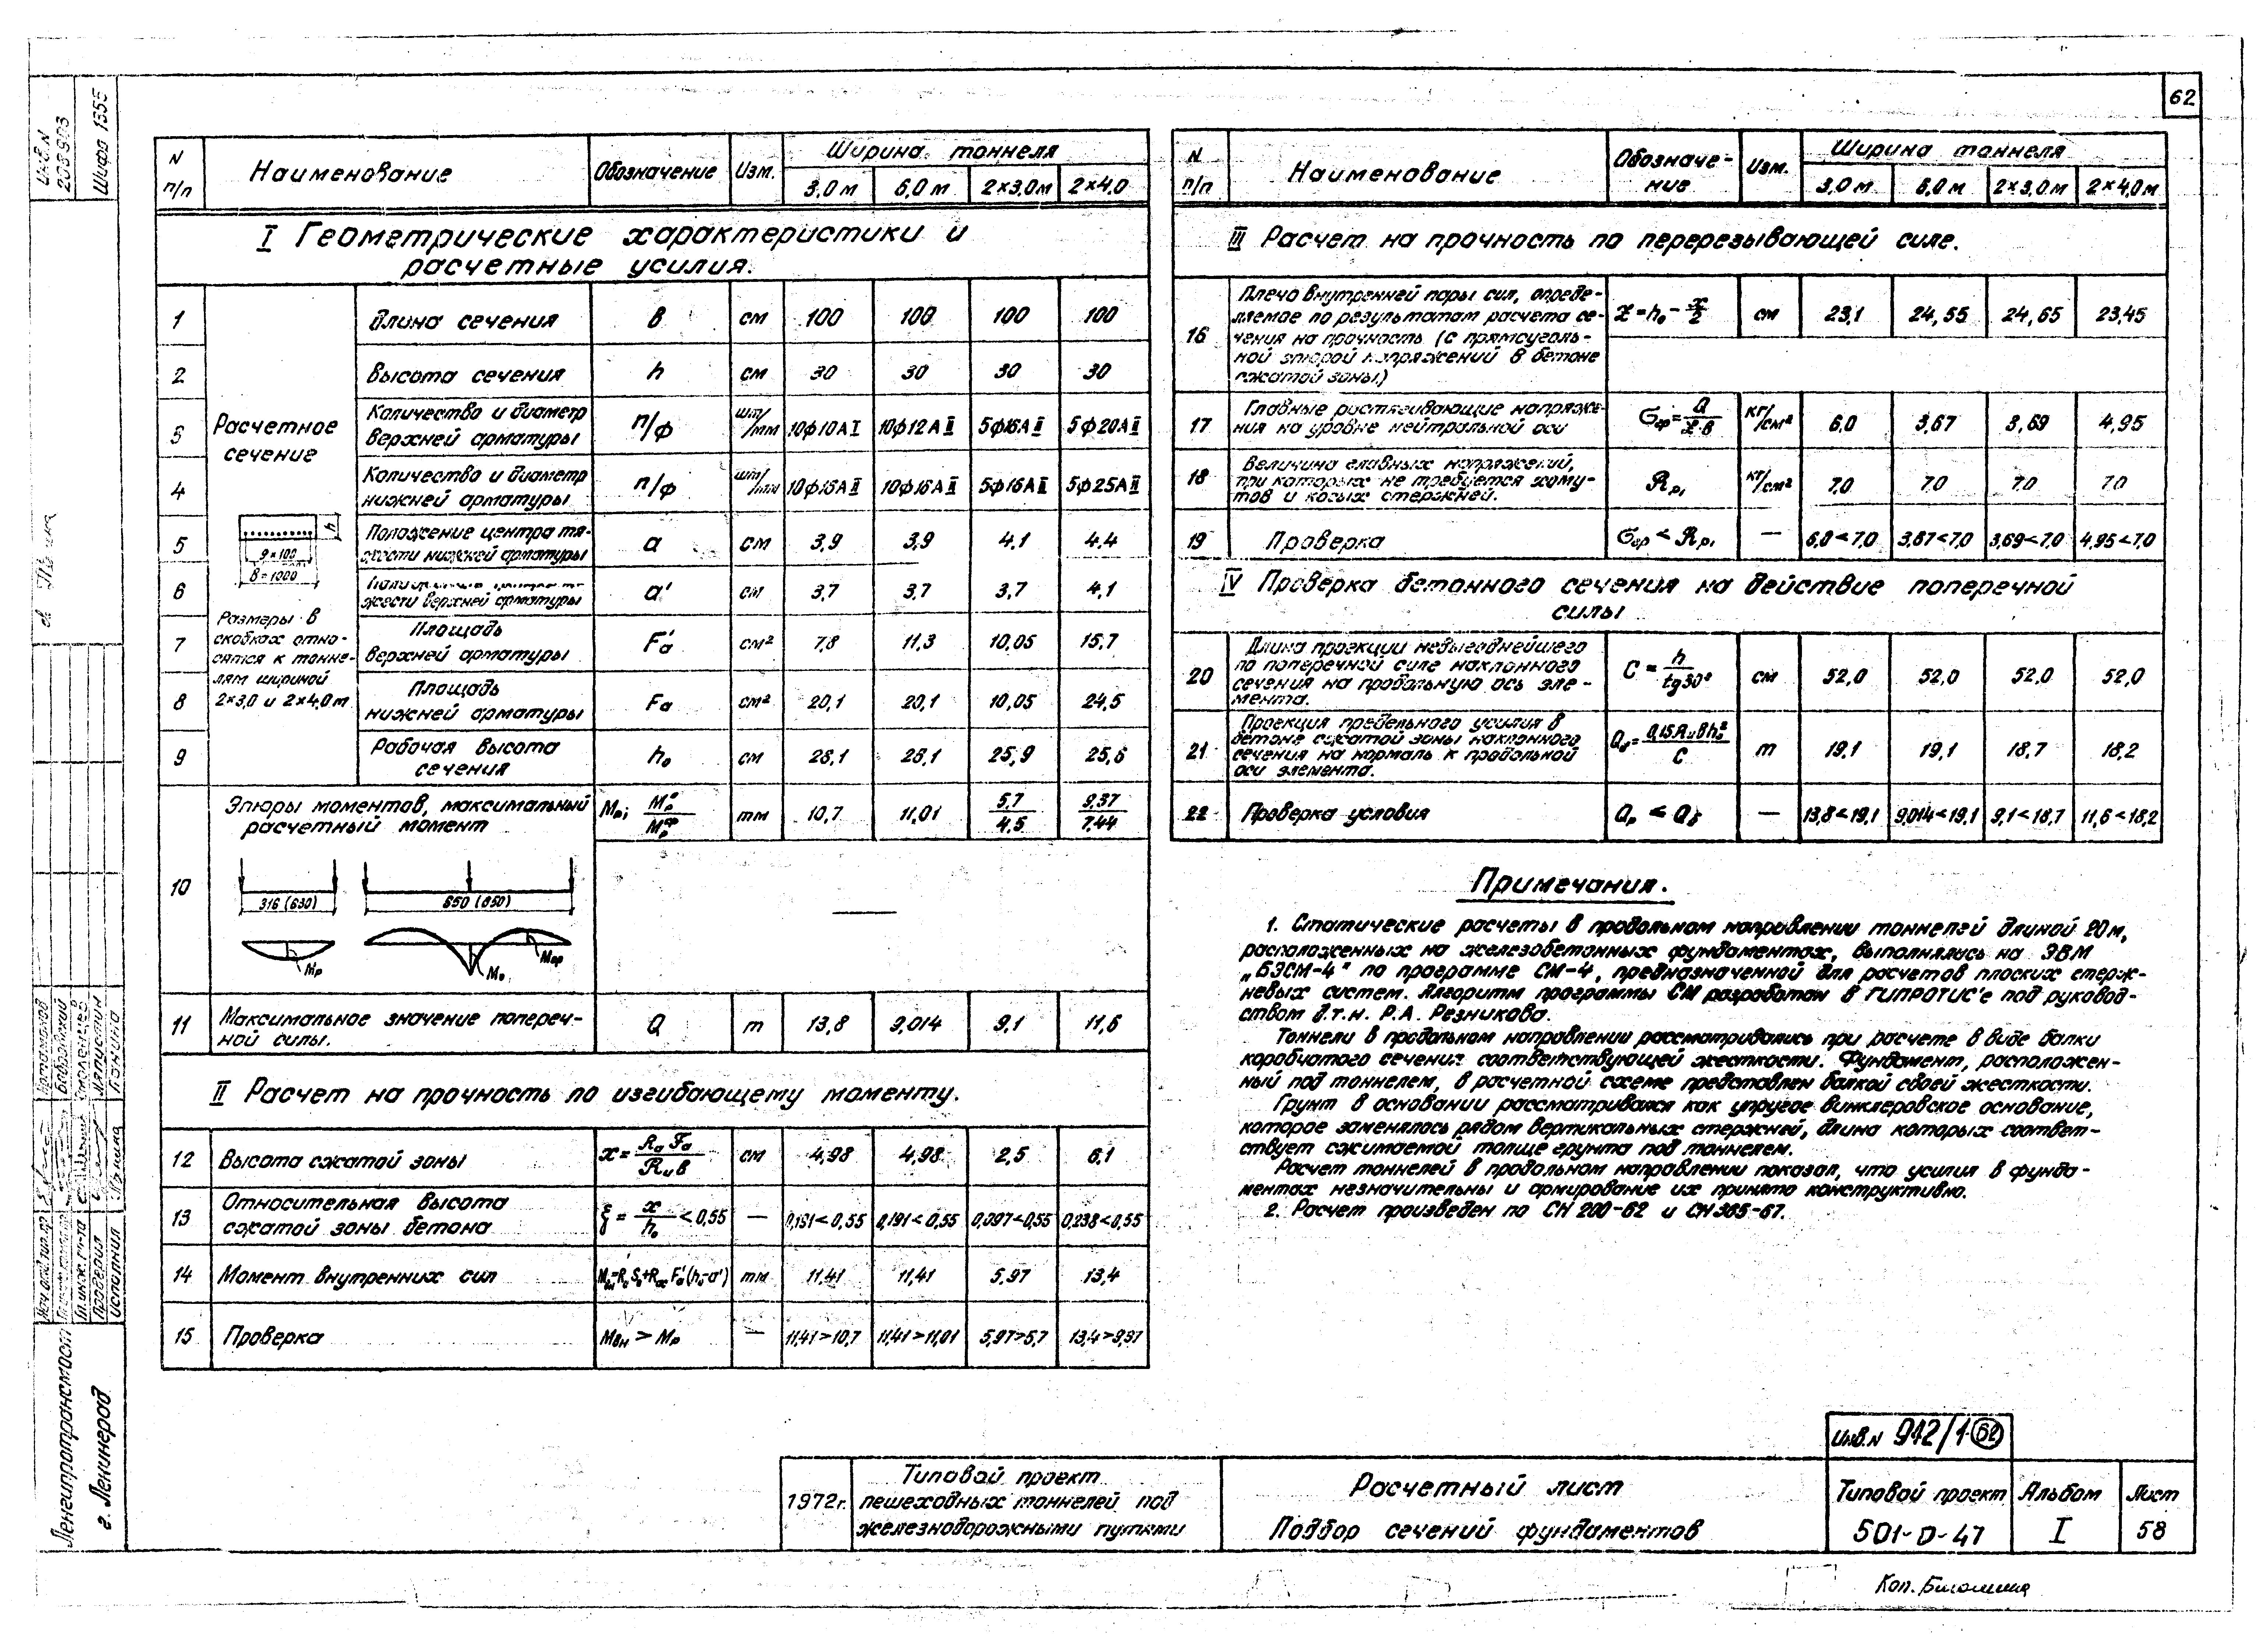 62
Инв.N
Шифр 1355
N п/п
Наименование
Обозначение
Изм.
Ширина тоннеля
3,0 м
6,0 м
2×3,0м
2×4,0
I Геометрические характеристики и
расчетные усилия.
Расчетное
сечение
9×100
в=1000
h
Размеры в
скобках отно-
сятся к тонне-
лям шириной
2×3,0 и 2×4,0м
1 Длина сечения в см 100 100 100 100
2 Высота сечения h см 30 30 30 30
3 Количество и диаметр
верхней арматуры п/ф шт/мм 10ф10АI 10ф12АII 5ф16АII 5ф20АII
4 Количество и диаметр
нижней арматуры п/ф шт/мм 10ф16АII 10ф16АII 5ф16АII 5ф25АII
5 Положение центра тя-
жести нижней арматуры а см 3,9 3,9 4,1 4,4
6
жести верхней арматуры а' см 3,7 3,7 3,7 4,1
7 Площадь
верхней арматуры Fа' см² 7,8 11,3 10,05 15,7
8 Площадь
нижней арматуры Fа см² 20,1 20,1 10,05 24,5
9 Рабочая высота
сечения hо см 26,1 26,1 25,9 25,6
10 Эпюры моментов, максимальный
расчетный момент Mр; Mр°/Mр^пр тм 10,7 11,01 5,7/4,5 9,37/7,44
316 (630)
650 (850)
Mр
Mо
Mпр
11 Максимальное значение попереч-
ной силы. Q т 13,8 9,014 9,1 11,6
II Расчет на прочность по изгибающему моменту.
12 Высота сжатой зоны x = RаFа/Rив см 4,98 4,98 2,5 6,1
13 Относительная высота
сжатой зоны бетона ξ = x/hо < 0,55 — 0,191<0,55 0,191<0,55 0,097<0,55 0,238<0,55
14 Момент внутренних сил тм 11,41 11,41 5,97 13,4
15 Проверка Mвн > Mр — 11,41>10,7 11,41>11,01 5,97>5,7 13,4>9,37
N п/п
Наименование
Обозначе-
ние
Изм.
Ширина тоннеля
3,0 м
6,0 м
2×3,0м
2×4,0м
III Расчет на прочность по перерезывающей силе.
16 Плечо внутренней пары сил, опреде-
ляемое по результатам расчета се-
чения на прочность (с прямоуголь-
ной эпюрой напряжений в бетоне
сжатой зоны) z = hо - x/2 см 23,1 24,55 24,65 23,45
17 Главные растягивающие напряже-
ния на уровне нейтральной оси σср = Q/z·в кг/см² 6,0 3,67 3,69 4,95
18 Величина главных напряжений,
при которых не требуется хому-
тов и косых стержней. Rр₁ кг/см² 7,0 7,0 7,0 7,0
19 Проверка σср < Rр₁ — 6,0<7,0 3,67<7,0 3,69<7,0 4,95<7,0
IV Проверка бетонного сечения на действие поперечной
силы
20 Длина проекции невыгоднейшего
по поперечной силе наклонного
сечения на продольную ось эле-
мента. C = h/tg30° см 52,0 52,0 52,0 52,0
21 Проекция предельного усилия в
бетоне сжатой зоны наклонного
сечения на нормаль к продольной
оси элемента. Qб = 0,15Rивhо²/C т 19,1 19,1 18,7 18,2
22 Проверка условия Qр ≤ Qб — 13,8<19,1 9,014<19,1 9,1<18,7 11,6<18,2
Примечания.
1. Статические расчеты в продольном направлении тоннелей длиной 20 м,
расположенных на железобетонных фундаментах, выполнялись на ЭВМ
„БЭСМ-4" по программе СМ-4, предназначенной для расчетов плоских стерж-
невых систем. Алгоритм программы СМ разработан в ГИПРОТИС'е под руковод-
ством д.т.н. Р.А. Резникова.
Тоннели в продольном направлении рассматривались при расчете в виде балки
коробчатого сечения соответствующей жесткости. Фундамент, расположен-
ный под тоннелем, в расчетной схеме представлен балкой своей жесткости.
Грунт в основании рассматривался как упругое винклеровское основание,
которое заменялось рядом вертикальных стержней, длина которых соответ-
ствует сжимаемой толще грунта под тоннелем.
Расчет тоннелей в продольном направлении показал, что усилия в фунда-
ментах незначительны и армирование их принято конструктивно.
2. Расчет произведен по СН 200-62 и СН 365-67.
Инв.N 912/1 62
1972г.
Типовой проект
пешеходных тоннелей под
железнодорожными путями
Расчетный лист
Подбор сечений фундаментов
Типовой проект
501-0-47
Альбом
I
Лист
58
Ленгипротрансмост
г. Ленинград
Проверил
Исполнил
Коп.